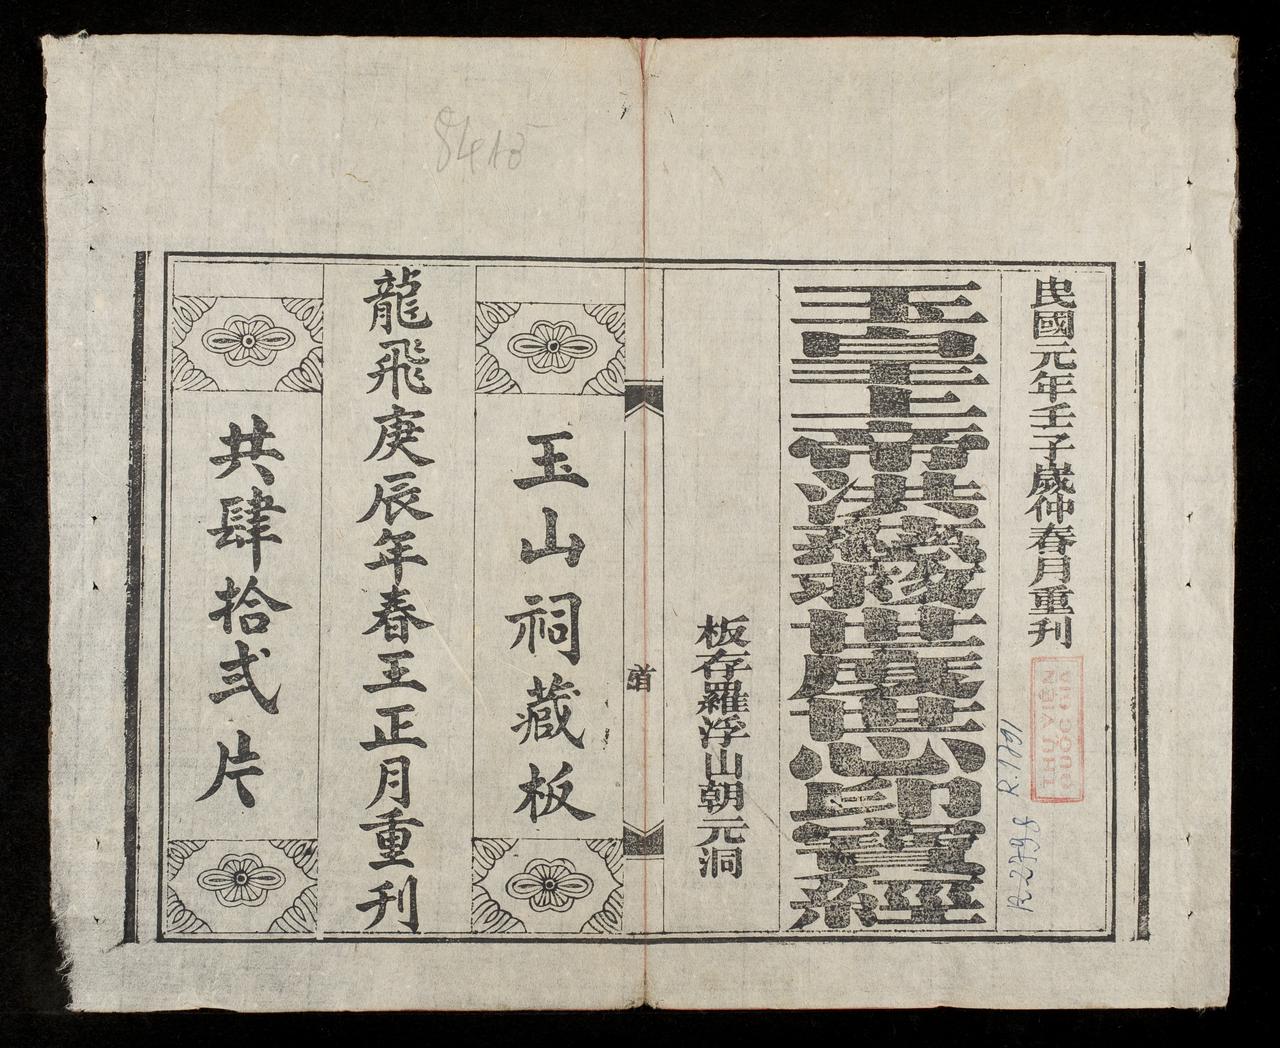 民國元年壬子歲仲春月重刋
玉皇上帝洪慈救世度世心印寶經
板存羅浮山朝元洞
首
玉山祠藏板
龍飛庚辰年春王正月重刋
共肆拾弍片
THƯ VIỆN
QUỐC GIA
R.1791
R.2798